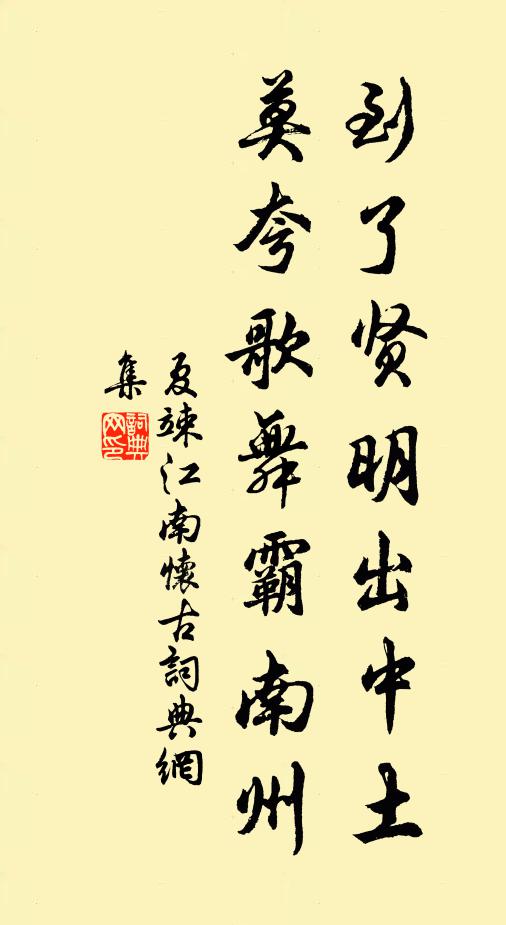 到了贤明出中土
莫夸歌舞霸南州
夏竦江南懷古詞典網
集
詞典
网印